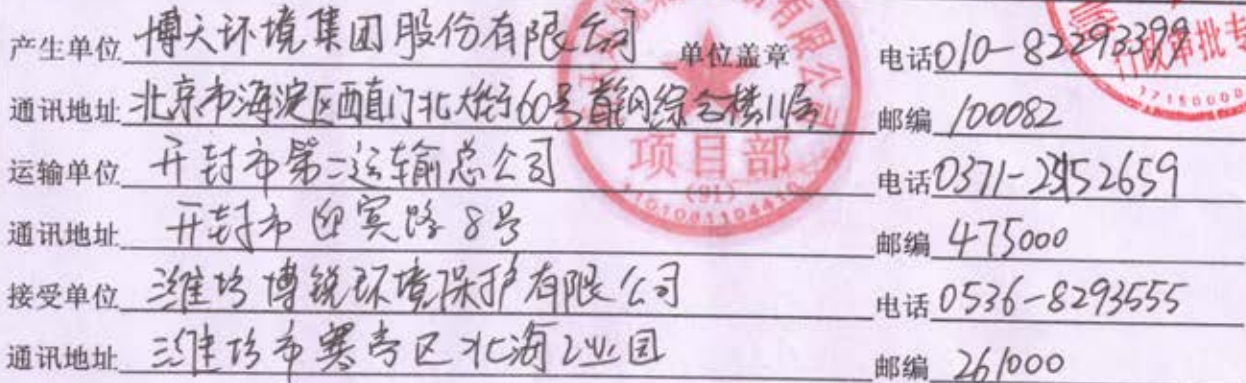 产生单位 博天环境集团股份有限公司 单位盖章 电话 010-82293399
通讯地址 北京市海淀区西直门北大街60号首钢综合楼11层 邮编 100082
项目部
运输单位 开封市第二运输总公司 电话 0371-2952659
(01)
通讯地址 开封市迎宾路8号 邮编 475000
接受单位 潍坊博锐环境保护有限公司 电话 0536-8293555
通讯地址 潍坊市寒亭区北海工业园 邮编 261000
行政审批专